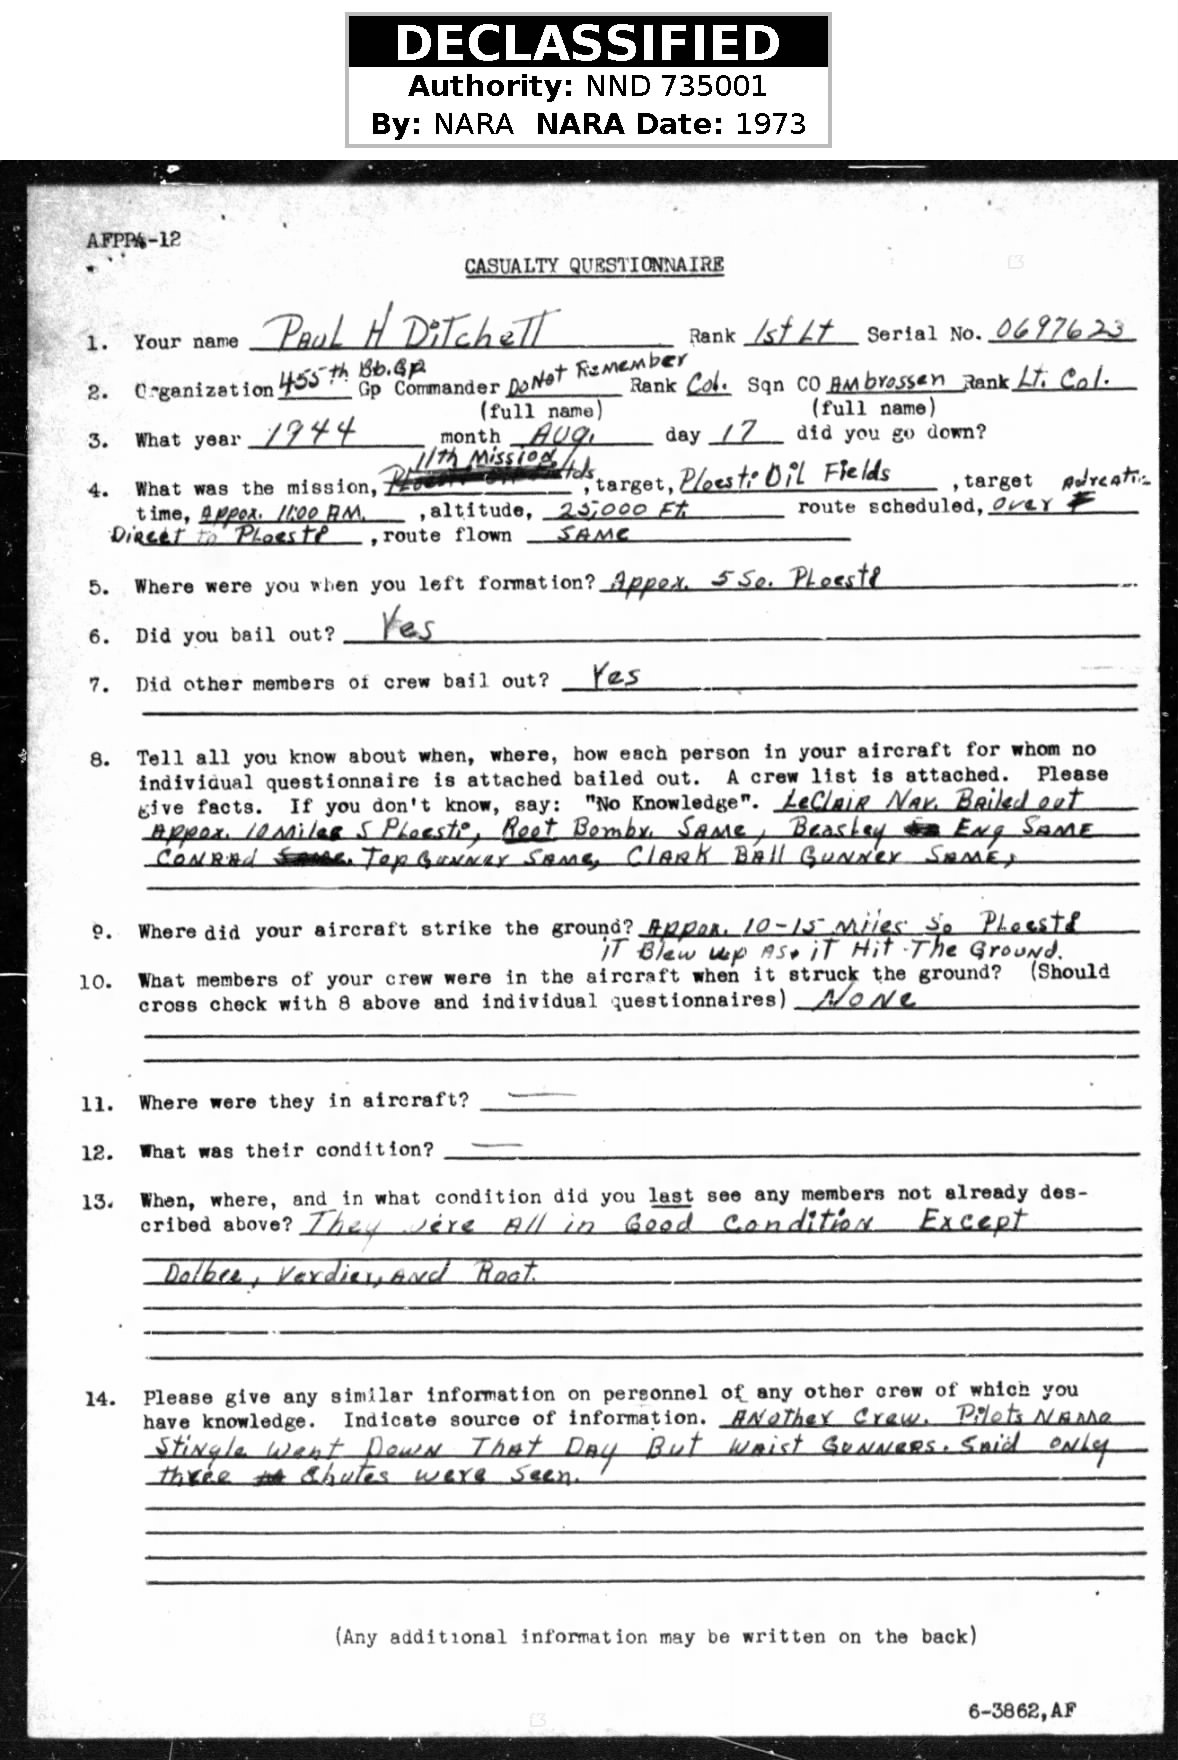 DECLASSIFIED
Authority: NND 735001
By: NARA NARA Date: 1973
AFPPA-12
CASUALTY QUESTIONNAIRE
1. Your name Paul H Ditchett Rank 1st Lt Serial No. 0697623
2. Organization 455th Bb. Gp Gp Commander Do Not Remember Rank Col. Sqn CO Ambrossen Rank Lt. Col.
(full name) (full name)
3. What year 1944 month Aug. day 17 did you go down?
11th Mission
4. What was the mission, , target, Ploesti Oil Fields , target
time, Appox. 11:00 AM. , altitude, 25,000 Ft. route scheduled, over
Direct to Ploesti , route flown Same
5. Where were you when you left formation? Appox. 5 So. Ploesti
6. Did you bail out? Yes
7. Did other members of crew bail out? Yes
8. Tell all you know about when, where, how each person in your aircraft for whom no
individual questionnaire is attached bailed out. A crew list is attached. Please
give facts. If you don't know, say: "No Knowledge". LeClair Nav. Bailed out
Appox. 10 Miles S Ploesti, Root Bombr. Same, Beasley Eng Same
Conrad Top Gunner Same, Clark Ball Gunner Same,
9. Where did your aircraft strike the ground? Appox. 10-15 Miles So Ploesti
it Blew up As it Hit The Ground.
10. What members of your crew were in the aircraft when it struck the ground? (Should
cross check with 8 above and individual questionnaires) None
11. Where were they in aircraft? —
12. What was their condition? —
13. When, where, and in what condition did you last see any members not already des-
cribed above? They were All in Good Condition Except
Dolbee, Verdier, And Root.
14. Please give any similar information on personnel of any other crew of which you
have knowledge. Indicate source of information. Another Crew. Pilots Name
Stingle Went Down That Day But Waist Gunners. Said only
three Chutes were seen.
(Any additional information may be written on the back)
6-3862,AF